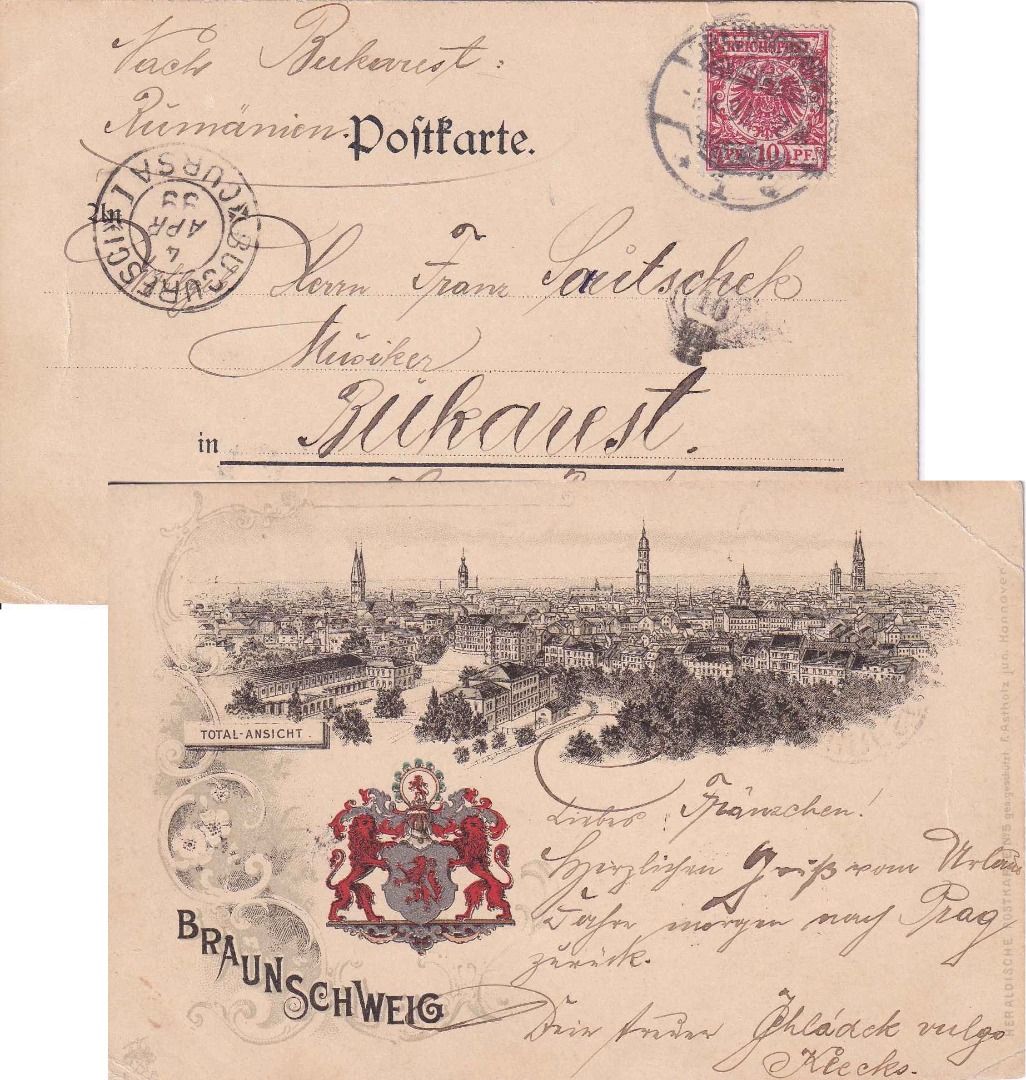 Nach Bukarest:
Rumänien.
Postkarte.
REICHSPOST
10 PF.
BUCURESCI
CURSA I
4
APR
99
An
Herrn Franz Sautschek
10
Musiker
in Bukarest.
TOTAL-ANSICHT.
BRAUNSCHWEIG
Liebes Fränzchen!
Herzlichen Gruß vom Urlaub
Fahre morgen nach Prag
zurück.
Dein treuer Chládek vulgo
Klecks.
HERALDISCHE POSTKARTE ges. geschützt f. Astholz jun. Hannover